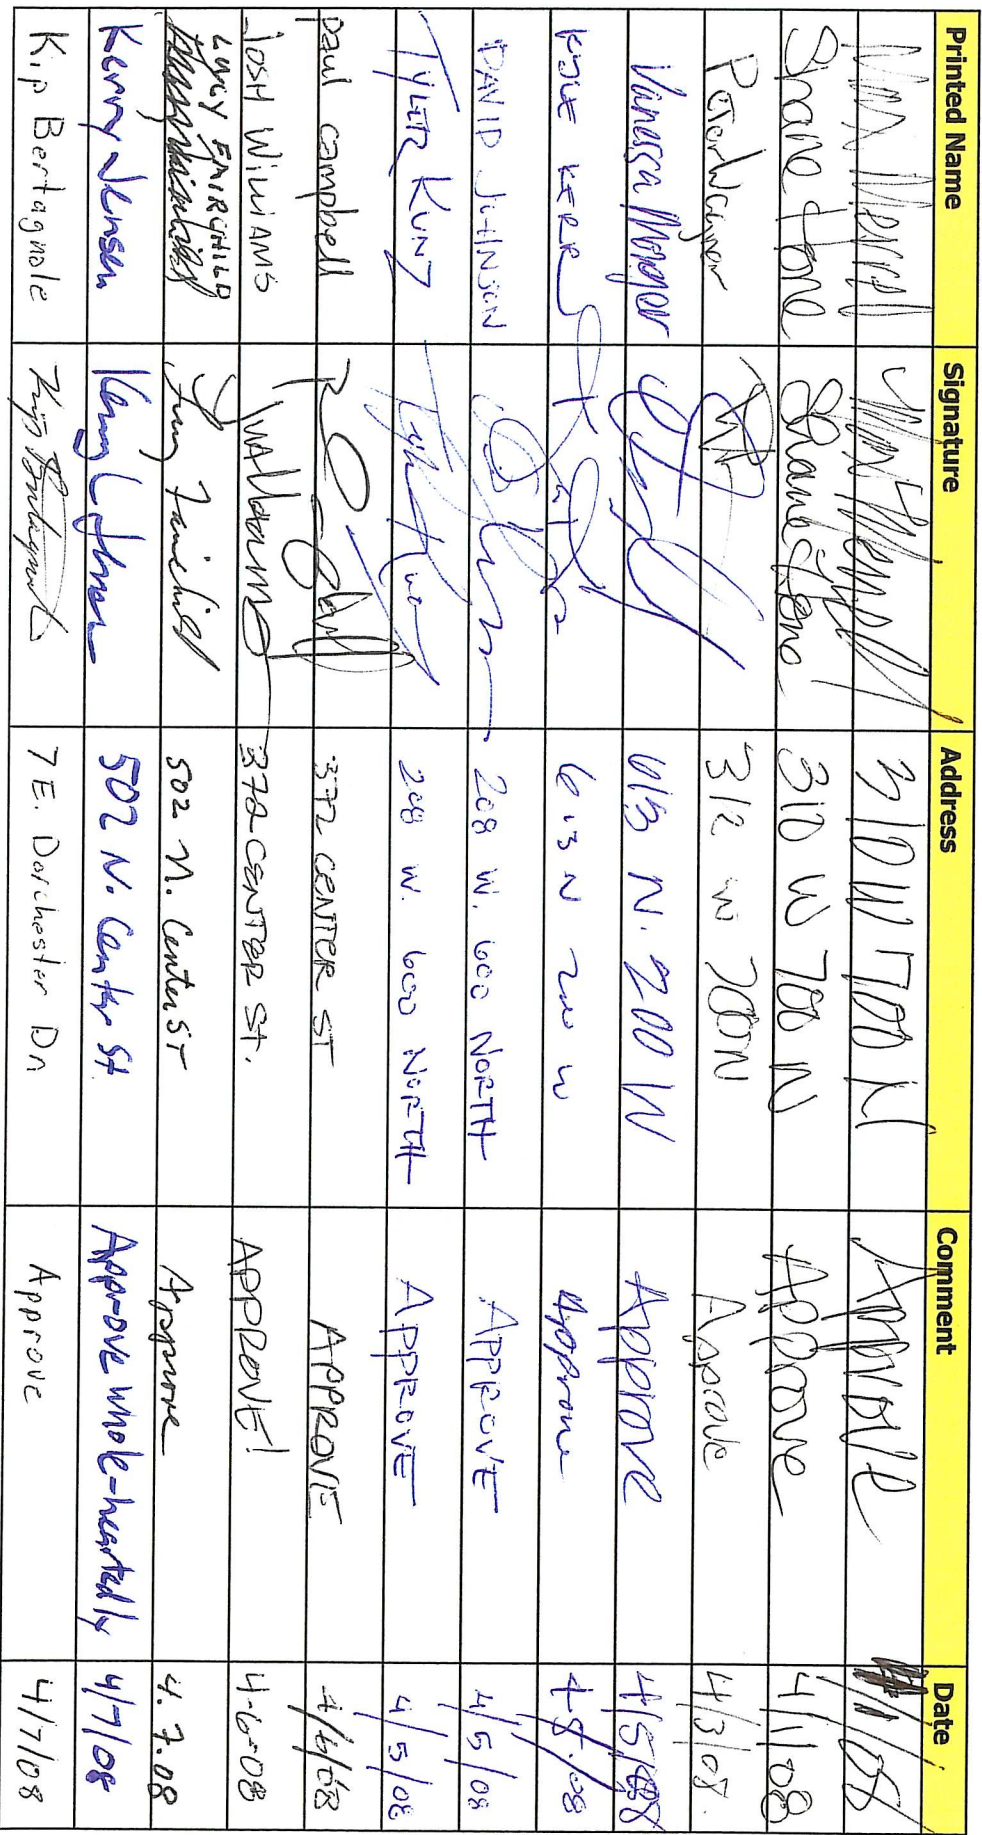 Printed Name Signature Address Comment Date
Max Merrill 310 W 700 N Approve
Shane Stone Shane Stone 310 W 700 N Approve 4/1/08
312 W 700N Approve 4/3/08.
Vanessa 613 N. 200 W Approve 4/5/08
KYLE KERR 613 N 200 W Approve 4-5-/08
DAVID JOHNSON 208 W. 600 NORTH APPROVE 4/5/08
TYLER KUNZ 208 W. 600 NORTH APPROVE 4/5/08
paul campbell 372 CENTER ST APPROVE 4/6/08
JOSH WILLIAMS 372 CENTER ST. APPROVE! 4-6-08
LUCY FAIRCHILD Lucy Fairchild 502 N. Center ST Approve 4.7.08
Kerry Jensen Kerry L Jensen 502 N. Center St. Approve whole-heartedly 4/7/08
Kip Bertagnole Kip Bertagnole 7 E. Dorchester Dr Approve 4/7/08